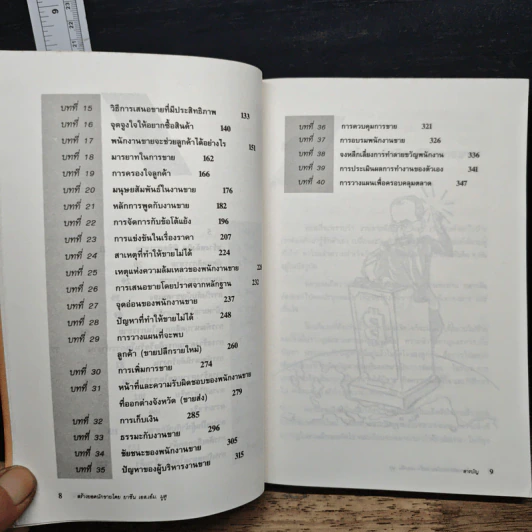 6
บทที่ 15 วิธีการเสนอขายที่มีประสิทธิภาพ 133
บทที่ 16 จุดจูงใจให้อยากซื้อสินค้า 140
บทที่ 17 พนักงานขายจะช่วยลูกค้าได้อย่างไร 151
บทที่ 18 มารยาทในการขาย 162
บทที่ 19 การครองใจลูกค้า 166
บทที่ 20 มนุษยสัมพันธ์ในงานขาย 176
บทที่ 21 หลักการพูดกับงานขาย 182
บทที่ 22 การจัดการกับข้อโต้แย้ง 196
บทที่ 23 การแข่งขันในเรื่องราคา 207
บทที่ 24 สาเหตุที่ทำให้ขายไม่ได้ 224
บทที่ 25 เหตุแห่งความล้มเหลวของพนักงานขาย
บทที่ 26 การเสนอขายโดยปราศจากหลักฐาน 232
บทที่ 27 จุดอ่อนของพนักงานขาย 237
บทที่ 28 ปัญหาที่ทำให้ขายไม่ได้ 248
บทที่ 29 การวางแผนที่จะพบ
ลูกค้า (ขายปลีกรายใหม่) 260
บทที่ 30 การเพิ่มการขาย 274
บทที่ 31 หน้าที่และความรับผิดชอบของพนักงานขาย
ที่ออกต่างจังหวัด (ขายส่ง) 279
บทที่ 32 การเก็บเงิน 285
บทที่ 33 ธรรมะกับงานขาย 296
บทที่ 34 ชัยชนะของพนักงานขาย 305
บทที่ 35 ปัญหาของผู้บริหารงานขาย 315
8
บทที่ 36 การควบคุมการขาย 321
บทที่ 37 การอบรมพนักงานขาย 326
บทที่ 38 จงหลีกเลี่ยงการทำลายขวัญพนักงาน 336
บทที่ 39 การประเมินผลการทำงานของตัวเอง 341
บทที่ 40 การวางแผนเพื่อครอบคลุมตลาด 347
สารบัญ 9